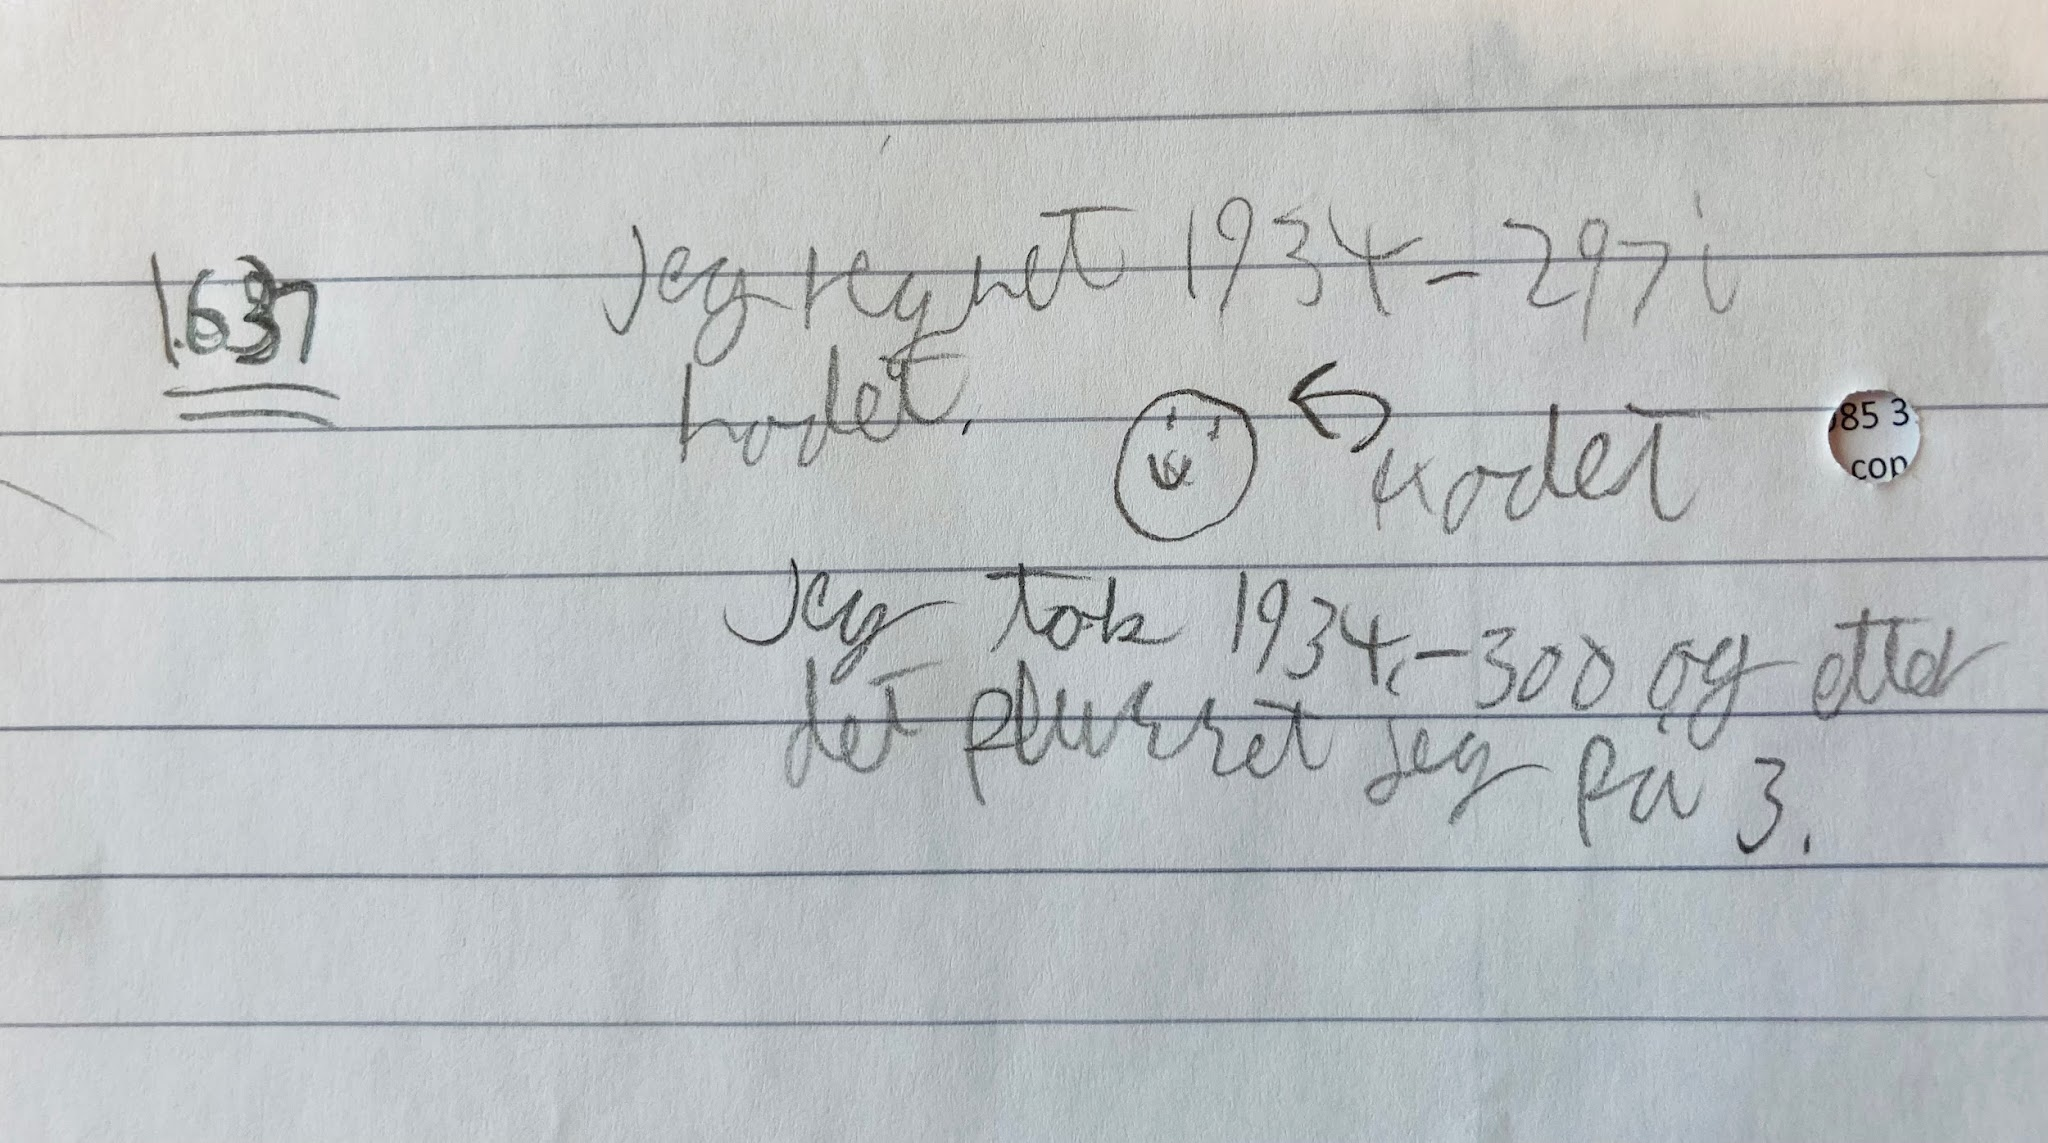 1.637
Jeg regnet 1934-297 i
hodet.
Hodet
Jeg tok 1934,-300 og etter
det plusset jeg på 3.
85 3
con